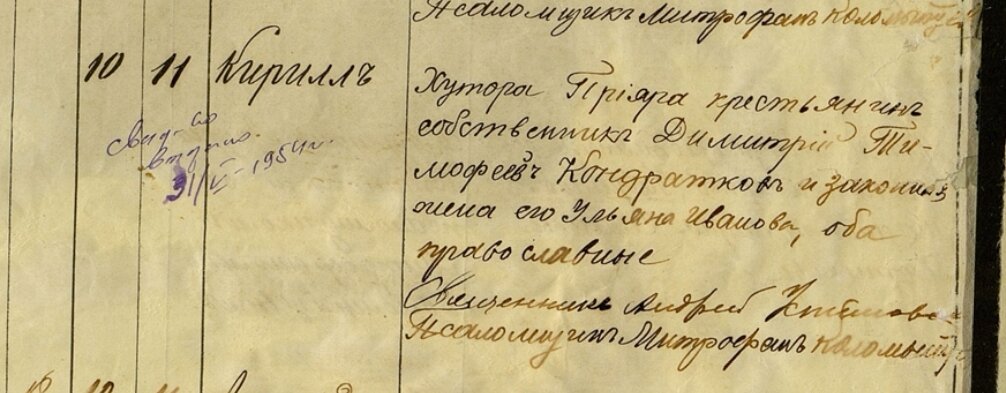 Псаломщикъ Митрофанъ Коломыйц
10 11 Кириллъ
Хутора Пріяра крестьянинъ
собственникъ Димитрій Ти-
мофеевъ Кондратковъ и законная
жена его Ульяна Иванова, оба
православные
Священникъ Андрей
Псаломщикъ Митрофанъ Коломыйц
свид-во
выдано
31/V-1954г.